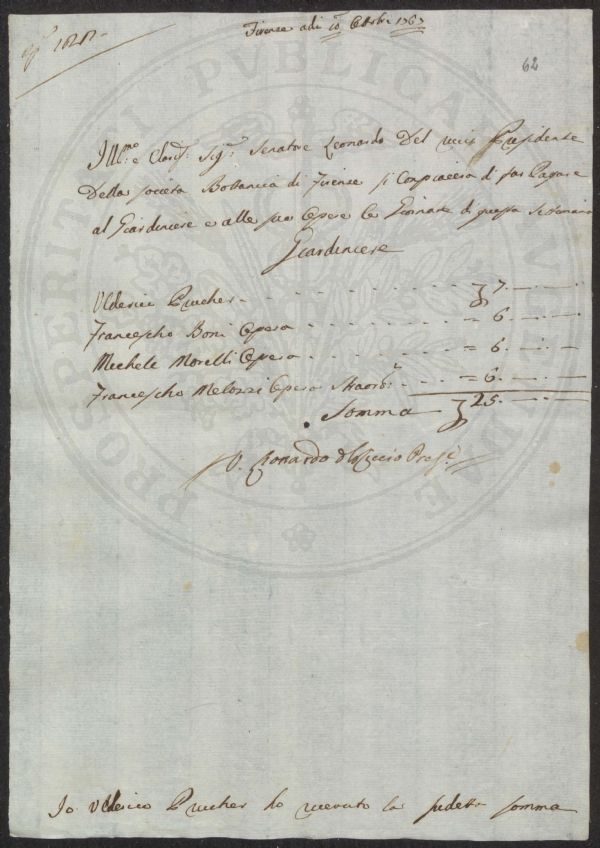 Firenze adi 10 Ottobre 1767
62
Ill.mo e Clariss. Sig.r Senatore Leonardo Del Riccio Presidente
Della società Bottanica di Firenze si Conpiaccia di far Pagare
al Giardiniere e alle sue Opere le Giornate di questa Settimana
Giardiniere
Ulderico Prucher - - - - - - - - 7. - - -
Francescho Boni Opera - - - - - - = 6. - - -
Michele Morelli Opera - - - - - - = 6. - - -
Francescho Melozzi Opera Straord.a - - - = 6. - - -
Somma 25. - - -
V. Leonardo del Riccio Pres.e
Io Ulderico Prucher ho riceuto la sudetta somma
PROSPERITATI PVBLICAE AVGENDAE